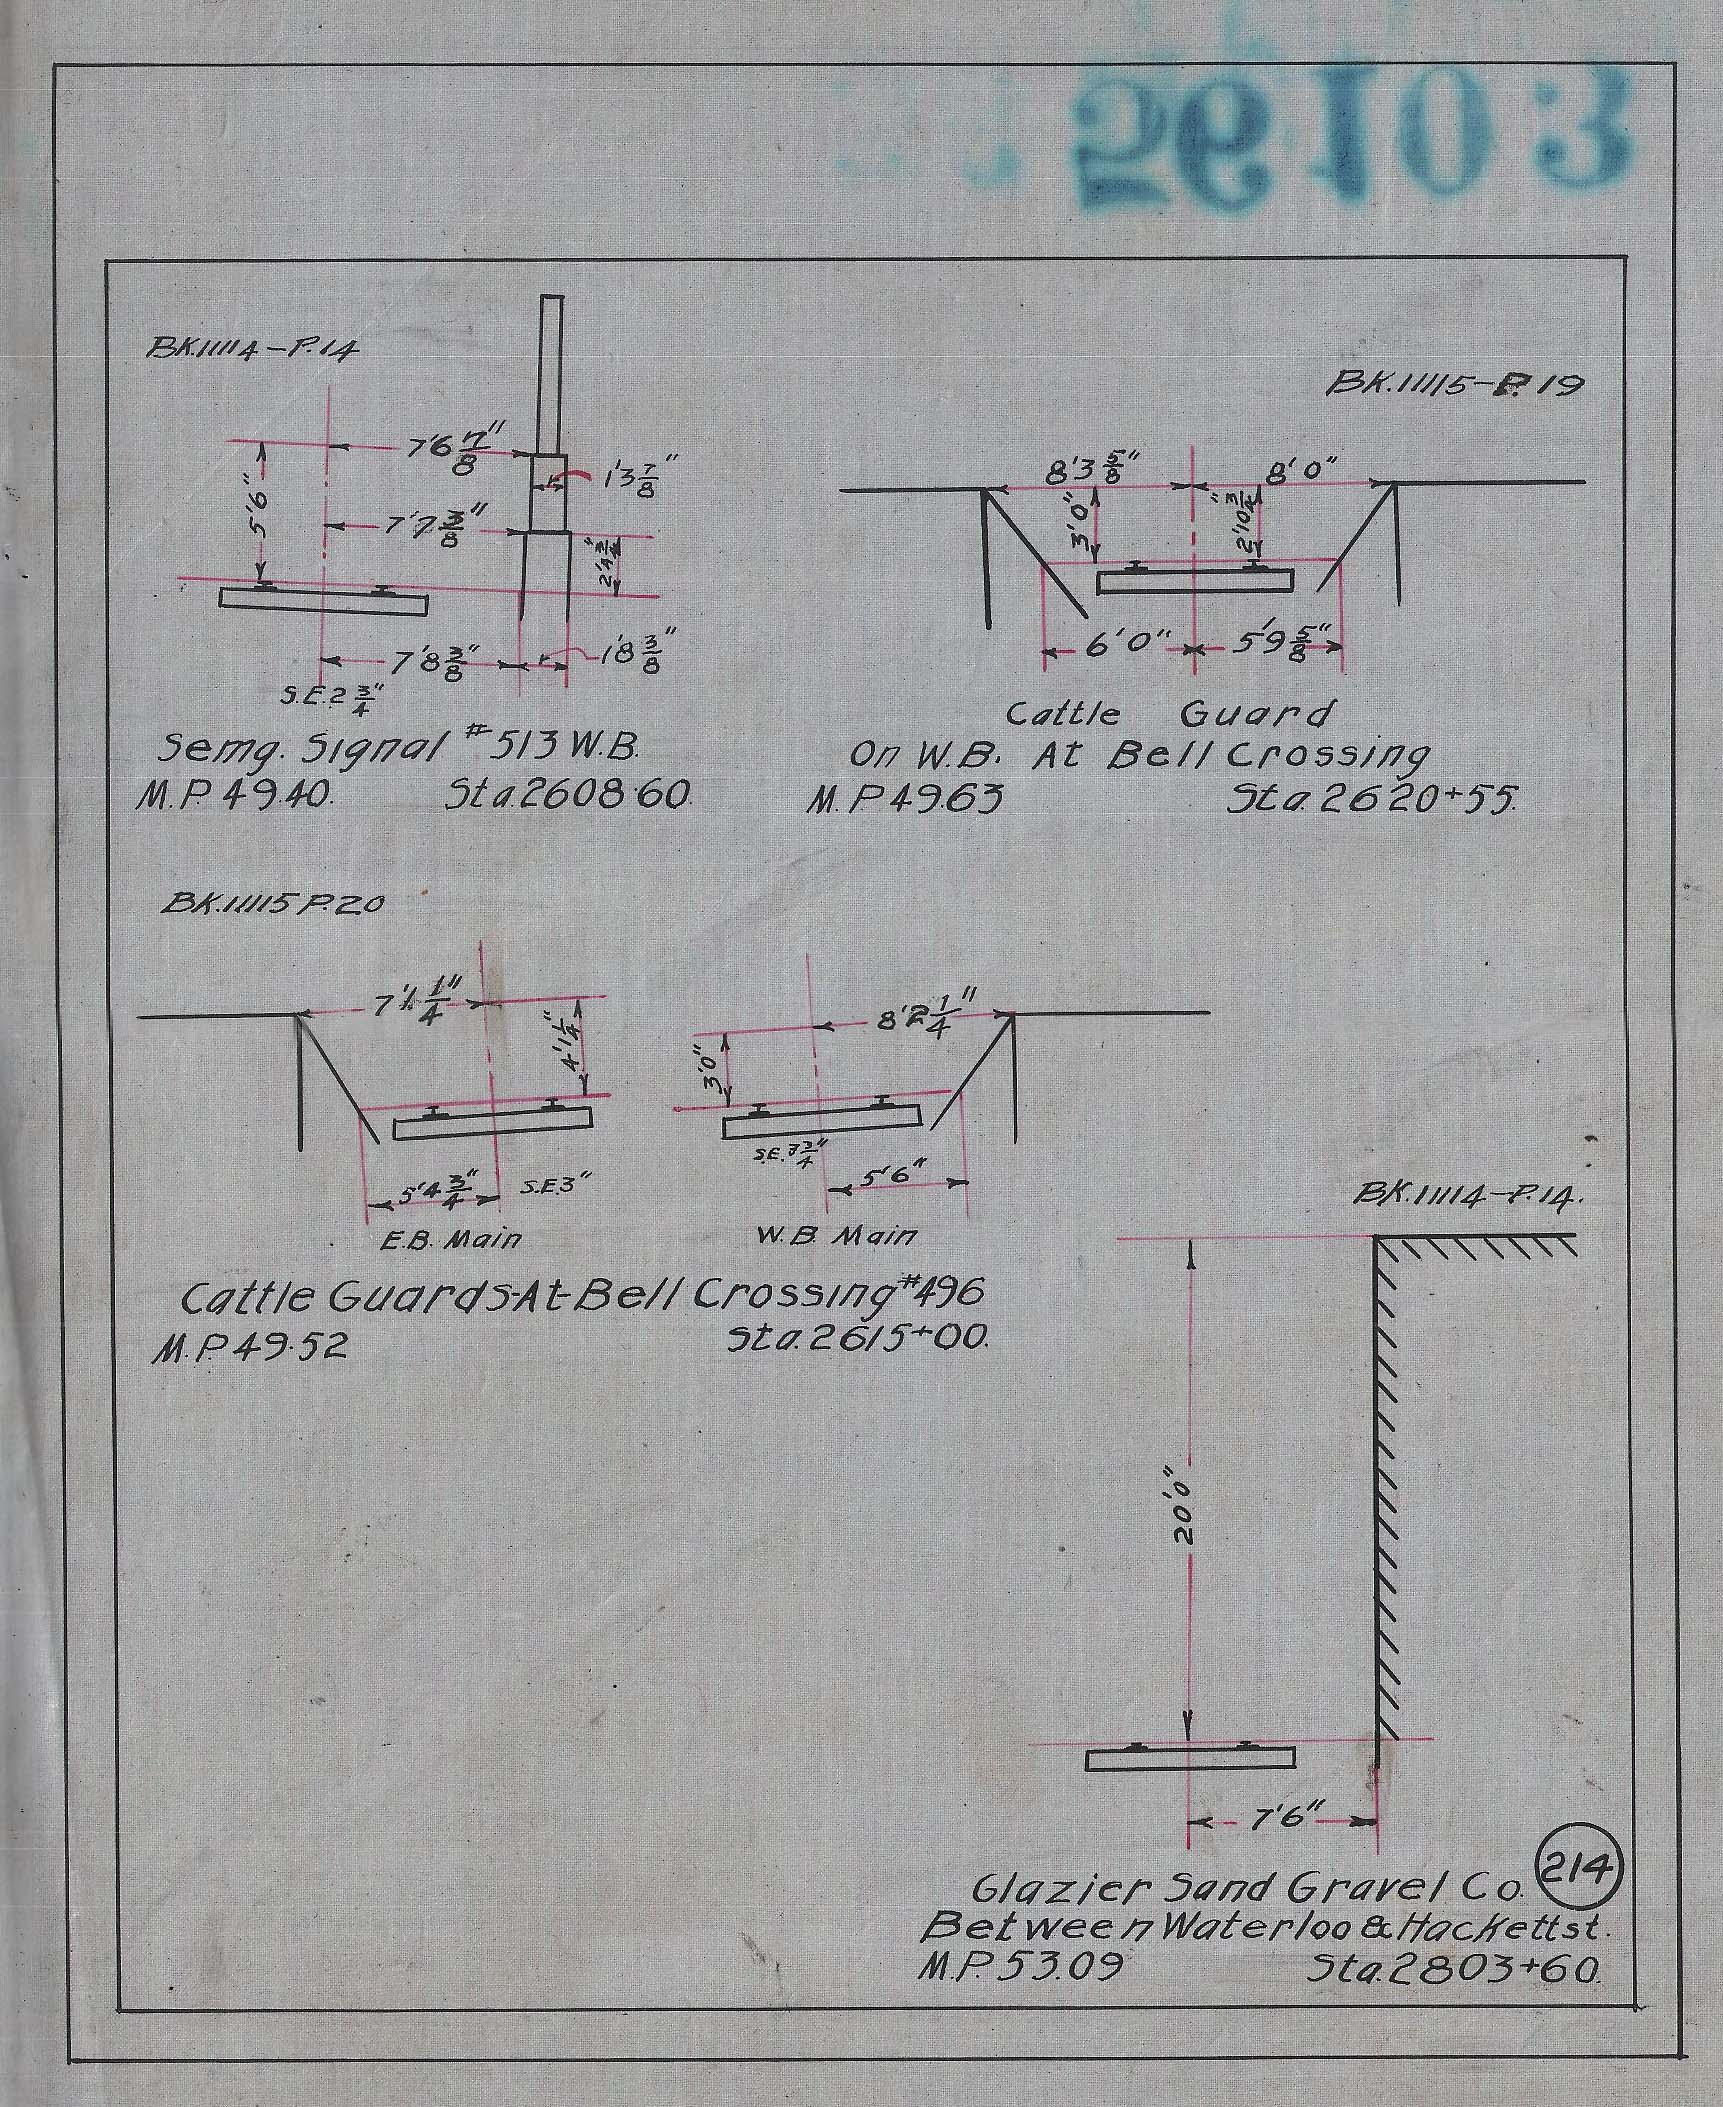 26103
BK.11114-P.14
7'6 7/8"
1'3 7/8"
5'6"
7'7 3/8"
2'4 3/4"
7'8 3/8"
1'8 3/8"
S.E. 2 3/4"
Semg. Signal #513 W.B.
M.P. 49.40. Sta. 2608.60.
BK.11115-P.19
8'3 5/8" 8'0"
3'0" 2'10 3/4"
6'0" 5'9 5/8"
Cattle Guard
On W.B. At Bell Crossing
M.P 49.63 Sta. 2620+55.
BK.11115 P.20
7'1 1/4" 8'2 1/4"
4'1 1/4" 3'0"
5'4 3/4" S.E.3" S.E. 3/4" 5'6"
E.B. Main W.B. Main
Cattle Guards-At-Bell Crossing #496
M.P. 49.52 Sta. 2615+00.
BK.11114-P.14.
20'0"
7'6"
214
Glazier Sand Gravel Co.
Between Waterloo & Hackettst.
M.P. 53.09 Sta. 2803+60.